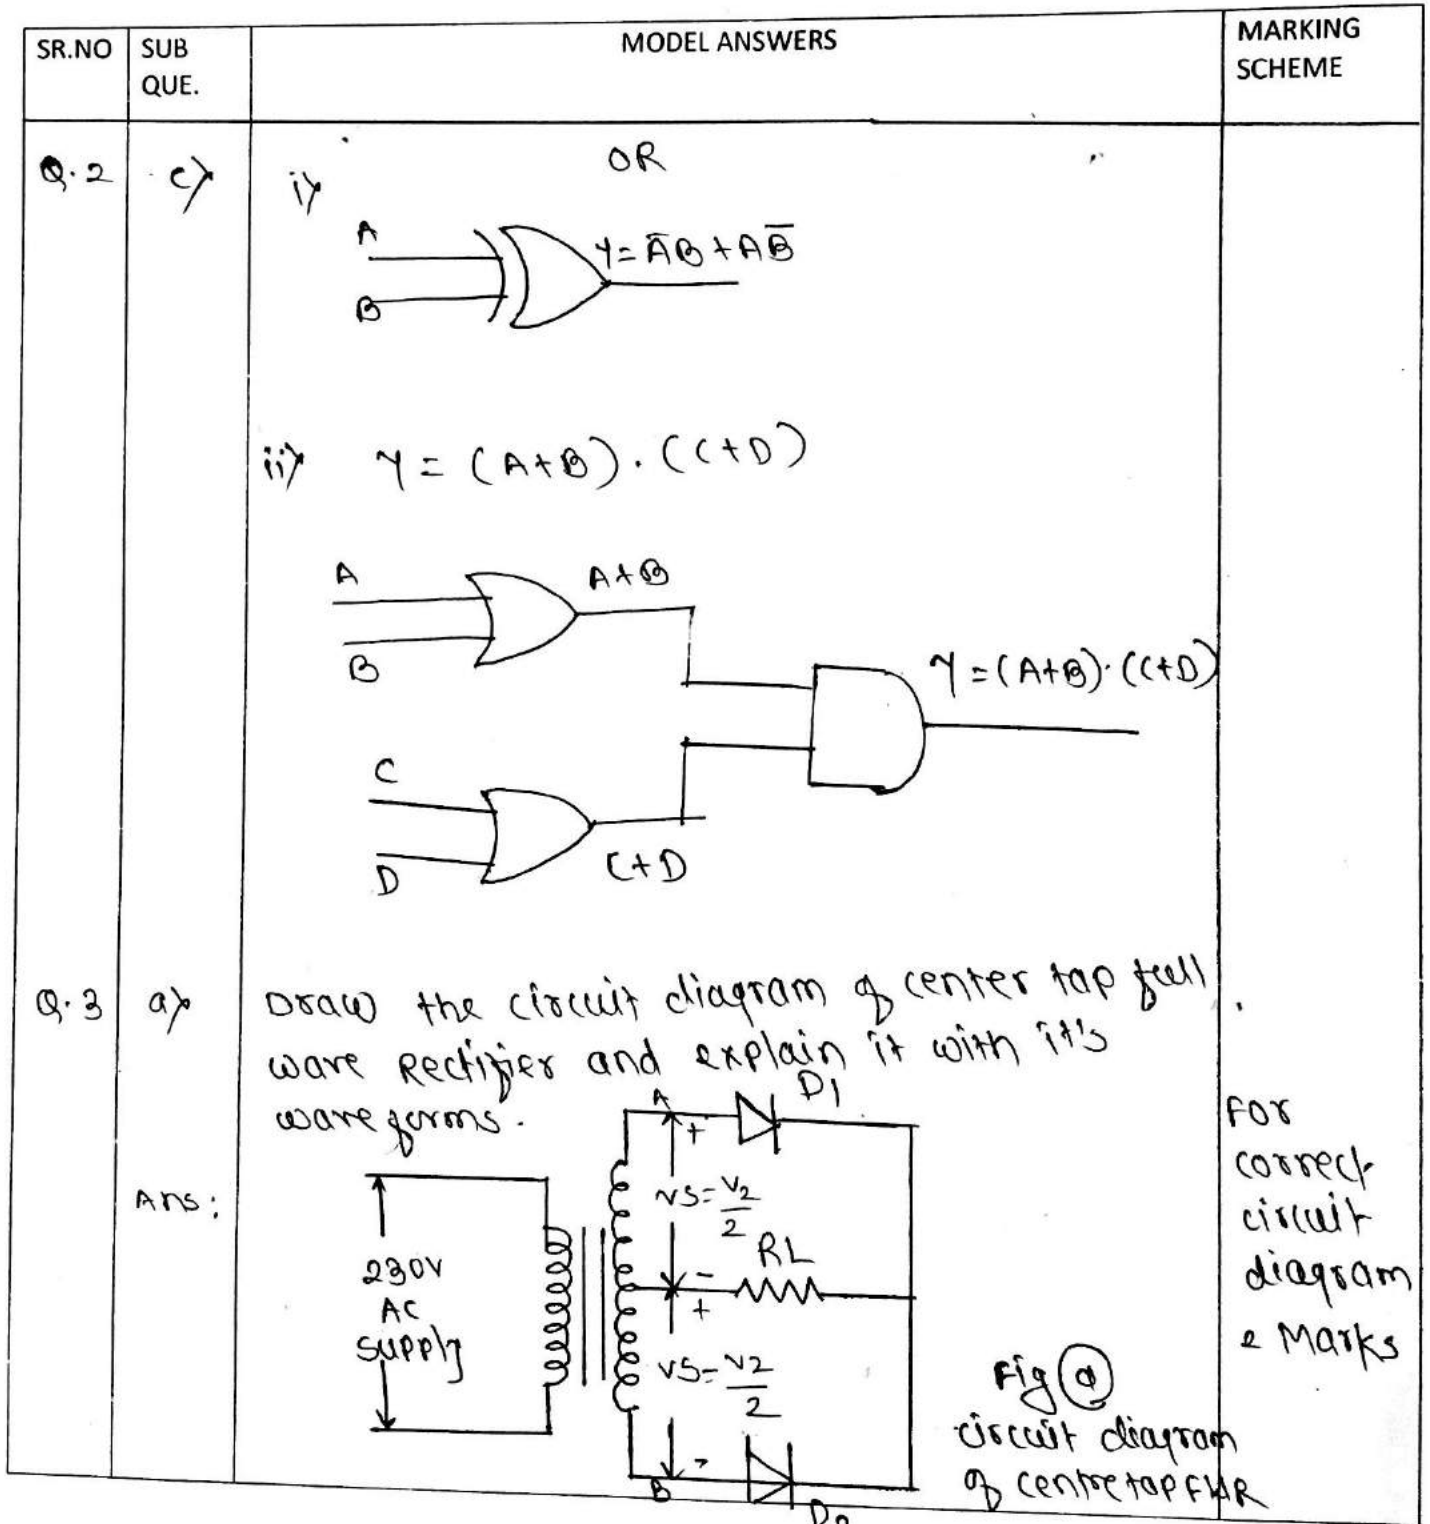 SR.NO SUB QUE. MODEL ANSWERS MARKING SCHEME
Q.2 c) i) OR
A
B
Y = A̅B + AB̅
ii) Y = (A+B).(C+D)
A
B
A+B
Y = (A+B).(C+D)
C
D
C+D
Q.3 a) Draw the circuit diagram of center tap full
wave Rectifier and explain it with it's
waveforms.
Ans:
A
+
D1
VS = V2/2
-
+
RL
230V
AC
supply
VS = V2/2
-
B
D2
Fig (a)
circuit diagram
of centre tap FWR
For
correct
circuit
diagram
2 Marks